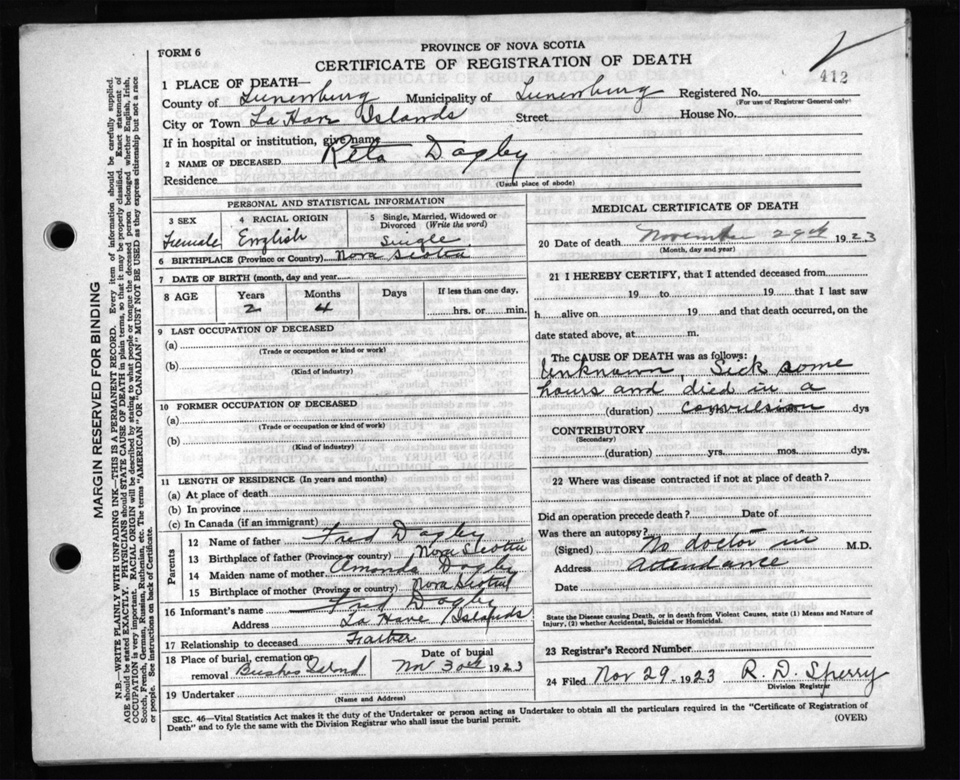 FORM 6
PROVINCE OF NOVA SCOTIA
CERTIFICATE OF REGISTRATION OF DEATH
412
1 PLACE OF DEATH—
County of Lunenburg Municipality of Lunenburg Registered No.
(For use of Registrar General only)
City or Town La Have Islands Street House No.
If in hospital or institution, give name
2 NAME OF DECEASED Reta Dagley
Residence
(Usual place of abode)
MARGIN RESERVED FOR BINDING
N.B.—WRITE PLAINLY WITH UNFADING INK—THIS IS A PERMANENT RECORD. Every item of information should be carefully supplied.
AGE should be stated EXACTLY. PHYSICIANS should STATE CAUSE OF DEATH in plain terms, so that it may be properly classified. Exact statement of
OCCUPATION is very important. RACIAL ORIGIN will be described by stating to what people or tongue the deceased person belonged whether English, Irish,
Scotch, French, German, Russian, Ruthenian, etc. The terms "AMERICAN" OR "CANADIAN" MUST NOT BE USED as they express citizenship but not a race
or people. See instructions on back of Certificate.
PERSONAL AND STATISTICAL INFORMATION
3 SEX
Female
4 RACIAL ORIGIN
English
5 Single, Married, Widowed or
Divorced (Write the word)
Single
6 BIRTHPLACE (Province or Country) Nova Scotia
7 DATE OF BIRTH (month, day and year
8 AGE
Years
2
Months
4
Days
If less than one day,
hrs. or min.
9 LAST OCCUPATION OF DECEASED
(a)
(Trade or occupation or kind or work)
(b)
(Kind of industry)
10 FORMER OCCUPATION OF DECEASED
(a)
(Trade or occupation or kind of work)
(b)
(Kind of industry)
11 LENGTH OF RESIDENCE (In years and months)
(a) At place of death
(b) In province
(c) In Canada (if an immigrant)
Parents
12 Name of father Fred Dagley
13 Birthplace of father (Province or country) Nova Scotia
14 Maiden name of mother Amonda Dagley
15 Birthplace of mother (Province or country) Nova Scotia
16 Informant's name Fred Dagley
Address La Have Islands
17 Relationship to deceased Father
18 Place of burial, cremation or
removal Bushes Island
Date of burial
Nov 30th 1923
19 Undertaker
(Name and Address)
MEDICAL CERTIFICATE OF DEATH
20 Date of death November 29th 1923
(Month, day and year)
21 I HEREBY CERTIFY, that I attended deceased from
19 to 19 that I last saw
h alive on 19 and that death occurred, on the
date stated above, at m.
The CAUSE OF DEATH was as follows:
Unknown, Sick some
hours and died in a
(duration) convulsion dys
CONTRIBUTORY
(Secondary)
(duration) yrs. mos. dys.
22 Where was disease contracted if not at place of death?
Did an operation precede death? Date of
Was there an autopsy?
(Signed) No doctor in M.D.
Address attendance
Date
State the Disease causing Death, or in death from Violent Causes, state (1) Means and Nature of
Injury, (2) whether Accidental, Suicidal or Homicidal.
23 Registrar's Record Number
24 Filed Nov 29 1923 R. D. Sperry
Division Registrar
SEC. 46—Vital Statistics Act makes it the duty of the Undertaker or person acting as Undertaker to obtain all the particulars required in the "Certificate of Registration of
Death" and to fyle the same with the Division Registrar who shall issue the burial permit.
(OVER)